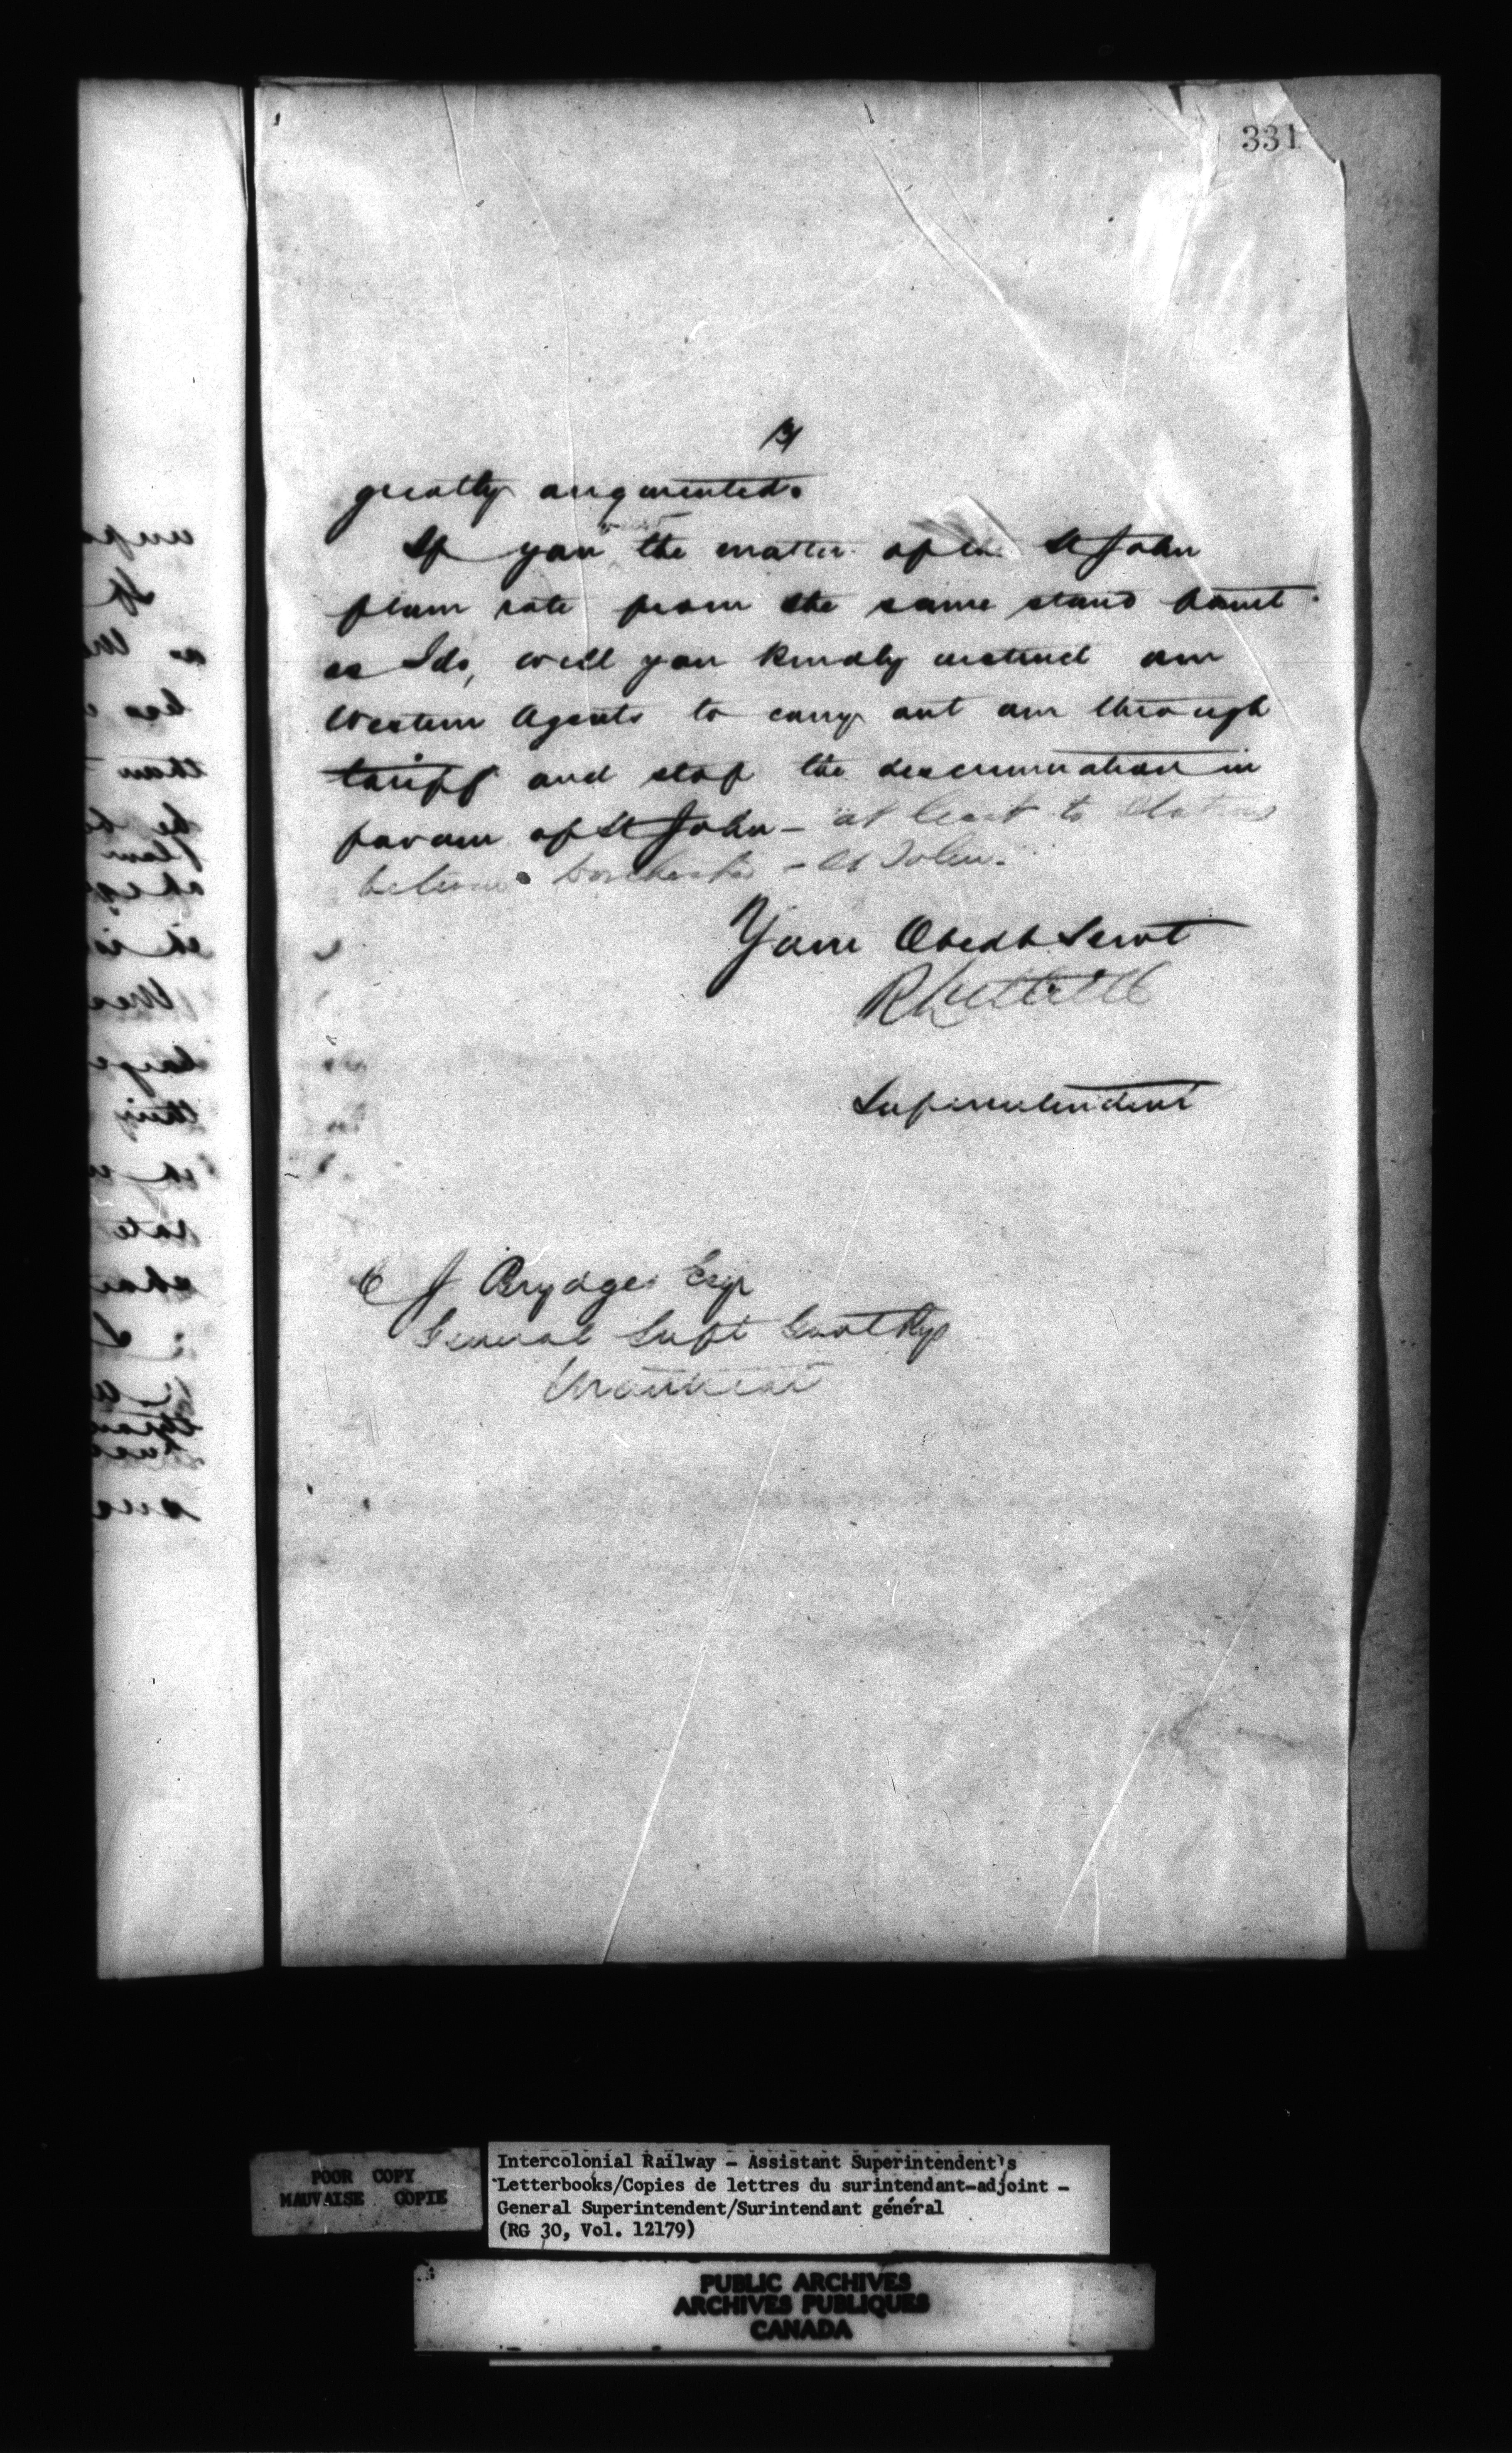 331
3/
greatly augmented.
If you the matter of the St John
flour rate from the same stand point
as I do, will you kindly instruct our
Western Agents to carry out our through
tariff and stop the descrimination in
favour of St John - at least to Stations
between Dorchester - St John.
Your Obedt Servt
R Luttrell
Superintendent
C J Brydges Esqr
General Supt Govt Rys
Montreal
POOR COPY
MAUVAISE COPIE
Intercolonial Railway - Assistant Superintendent's
Letterbooks/Copies de lettres du surintendant-adjoint -
General Superintendent/Surintendant général
(RG 30, Vol. 12179)
PUBLIC ARCHIVES
ARCHIVES PUBLIQUES
CANADA